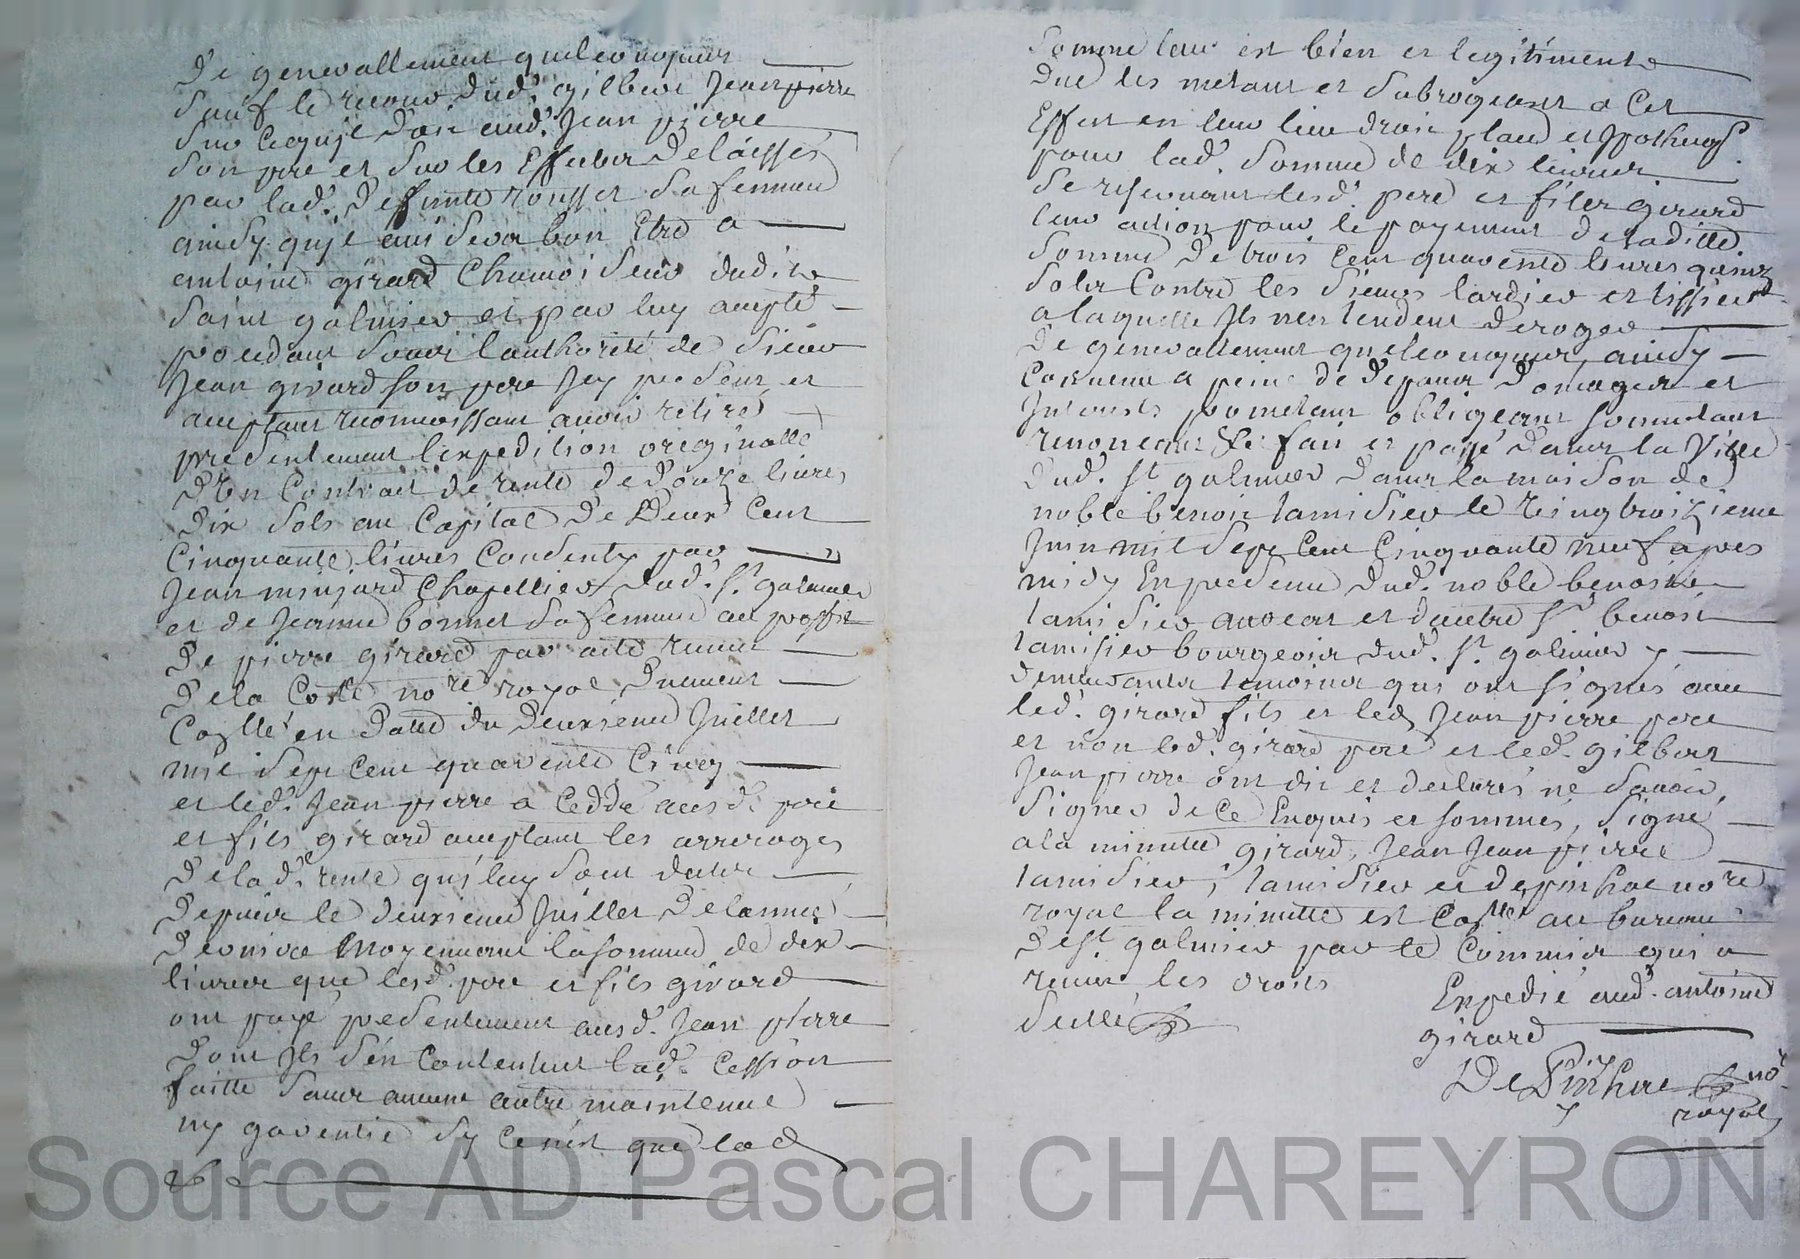 De generallement quelconques
sauf le recours dud. gilbert Jean pierre
sur ce qu'il doit aud. Jean pierre
son pere et sur les Effects Delaissés
par lad. Defunte rousset sa femme
ainsy qu'il avisera bon Etre a
antoine girard Chamoiseur dudit
Saint galmier et par luy accepté
procedant sous l'authorité de Sieur
Jean girard son pere Icy present et
acceptant reconnoissant avoir retiré
presentement l'expedition originalle
D'un Contrait de rente de Douze livres
Dix sols au Capital De Deux Cent
Cinquante livres Consenty par
Jean minjard Chapellier dud. St. galmier
et de Jeanne bonnet sa femme au proffit
De pierre girard par acte receu
Dela Coste nore royal Duement
Collé en Datte du Deuxieme Juillet
mil sept cent quarente Cinq
et led. Jean pierre a Ceddé ausd. pere
et fils girard acceptant les arrerages
Delad. rente qui luy sont deubs
Depuis le deuxieme Juillet Delannée
Derniere Moyennant la somme de dix
livres que lesd. pere et fils girard
ont payé presentement ausd. Jean pierre
Dont Ils s'en Contentent lad. Cession
faitte sans aucune autre maintenue
ny garentie sy ce n'est que lad
somme leur est bien et legitimente
Due les metant et subrogeant a Cet
Effect en leur lieu droit place et Ipotheque
pour lad. somme de dix livres
se reservant lesd. pere et fils girard
leur action pour le payement de laditte
somme De trois Cent quarente livres quinze
sols Contre les sieurs lardier et tissieur
a laquelle Ils n'entendent Deroger
De generallement quelconques, ainsy
Convenu a peine de Depens Domages et
Interests prometant obligeant soumetant
renonceant &c fait et passé Dans la Ville
Dud. St galmier Dans la maison de
noble benoit lamisier le vingtroizieme
Juin mil sept Cent Cinquante neuf apres
midy En presence Dud. noble benoist
lamisier avocat et d'autre sr benoit
lamisier bourgeois dud. St. galmier y
demeurants temoins qui ont signés avec
led. girard fils et led. Jean pierre pere
et non led. girard pere et led. gilbert
Jean pierre ont dit et declarés ne savoir
signer de Ce Enquis et sommés, Signé
a la minutte girard, Jean Jean pierre
lamisier, lamisier et depinhac nore
royal la minutte est Collé au bureau
De St galmier par le Commis qui a
receu les droits
Scellé
Expedié aud. antoine
girard
De Pinhac no.
royal
Source AD Pascal CHAREYRON